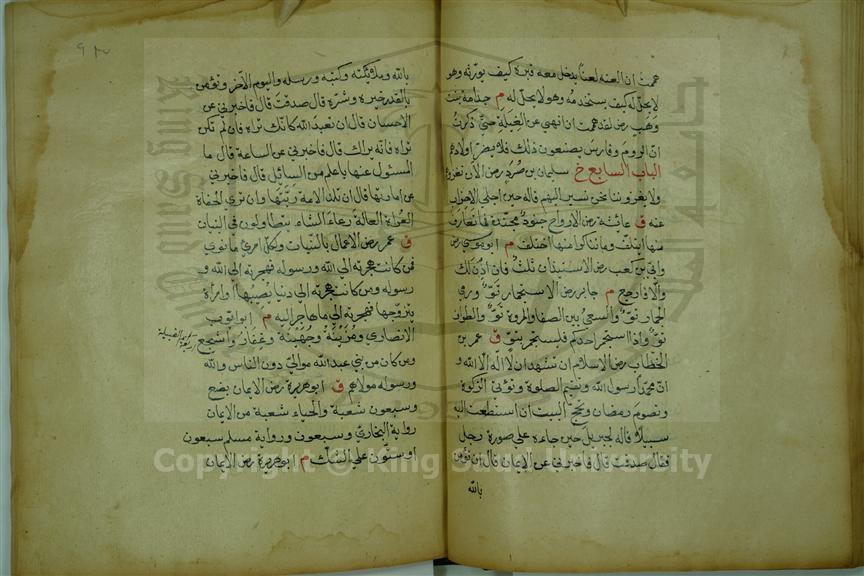 هممت ان العنه لعنا يدخل معه قبره كيف يورثه وهو
لا يحل له كيف يستخدمه وهو لا يحل له م جذامة بنت
وهب رض لقد هممت ان انهي عن الغيلة حتى ذكرت
ان الروم وفارس يصنعون ذلك فلا يضر اولادهم
الباب السابع خ سليمان بن صرد رض الآن نغزوهم
ولا يغزوننا نحن نسير اليهم قاله حين اجلى الاحزاب
عنه ق عائشة رض الارواح جنود مجندة فما تعارف
منها ائتلف وما تناكر منها اختلف م ابو موسى رض
وابي بن كعب رض الاستيذان ثلث فان اذن لك
والا فارجع م جابر رض الاستجمار تو ورمي
الجمار تو والسعي بين الصفا والمروة تو والطواف
تو واذا استجمر احدكم فليستجمر بتو ق عمر بن
الخطاب رض الاسلام ان تشهد ان لا اله الا الله و
ان محمدا رسول الله وتقيم الصلوة وتؤتي الزكوة
وتصوم رمضان وتحج البيت ان استطعت اليه
سبيلا قاله لجبريل حين جاءه على صورة رجل
فقال صدقت قال فاخبرني عن الايمان قال ان تؤمن
بالله
بالله وملائكته وكتبه ورسله واليوم الآخر وتؤمن
بالقدر خيره وشره قال صدقت قال فاخبرني عن
الاحسان قال ان تعبد الله كانك تراه فان لم تكن
تراه فانه يراك قال فاخبرني عن الساعة قال ما
المسئول عنها باعلم من السائل قال فاخبرني
عن اماراتها قال ان تلد الامة ربتها وان ترى الحفاة
العراة العالة رعاء الشاء يتطاولون في البنيان
ق عمر رض الاعمال بالنيات ولكل امرئ ما نوى
فمن كانت هجرته الي الله ورسوله فهجرته الي الله و
رسوله ومن كانت هجرته الي دنيا يصيبها او امراة
يتزوجها فهجرته الي ما هاجر اليه م ابو ايوب
الانصاري ومزينة وجهينة وغفار واشجع
ومن كان من بني عبد الله موالي دون الناس والله
ورسوله مولاهم ق ابو هريرة رض الايمان بضع
وسبعون شعبة والحياء شعبة من الايمان
رواية البخاري وستون ورواية مسلم سبعون
او ستون على الشك م ابو هريرة رض الايمان
Copyright © King Saud University